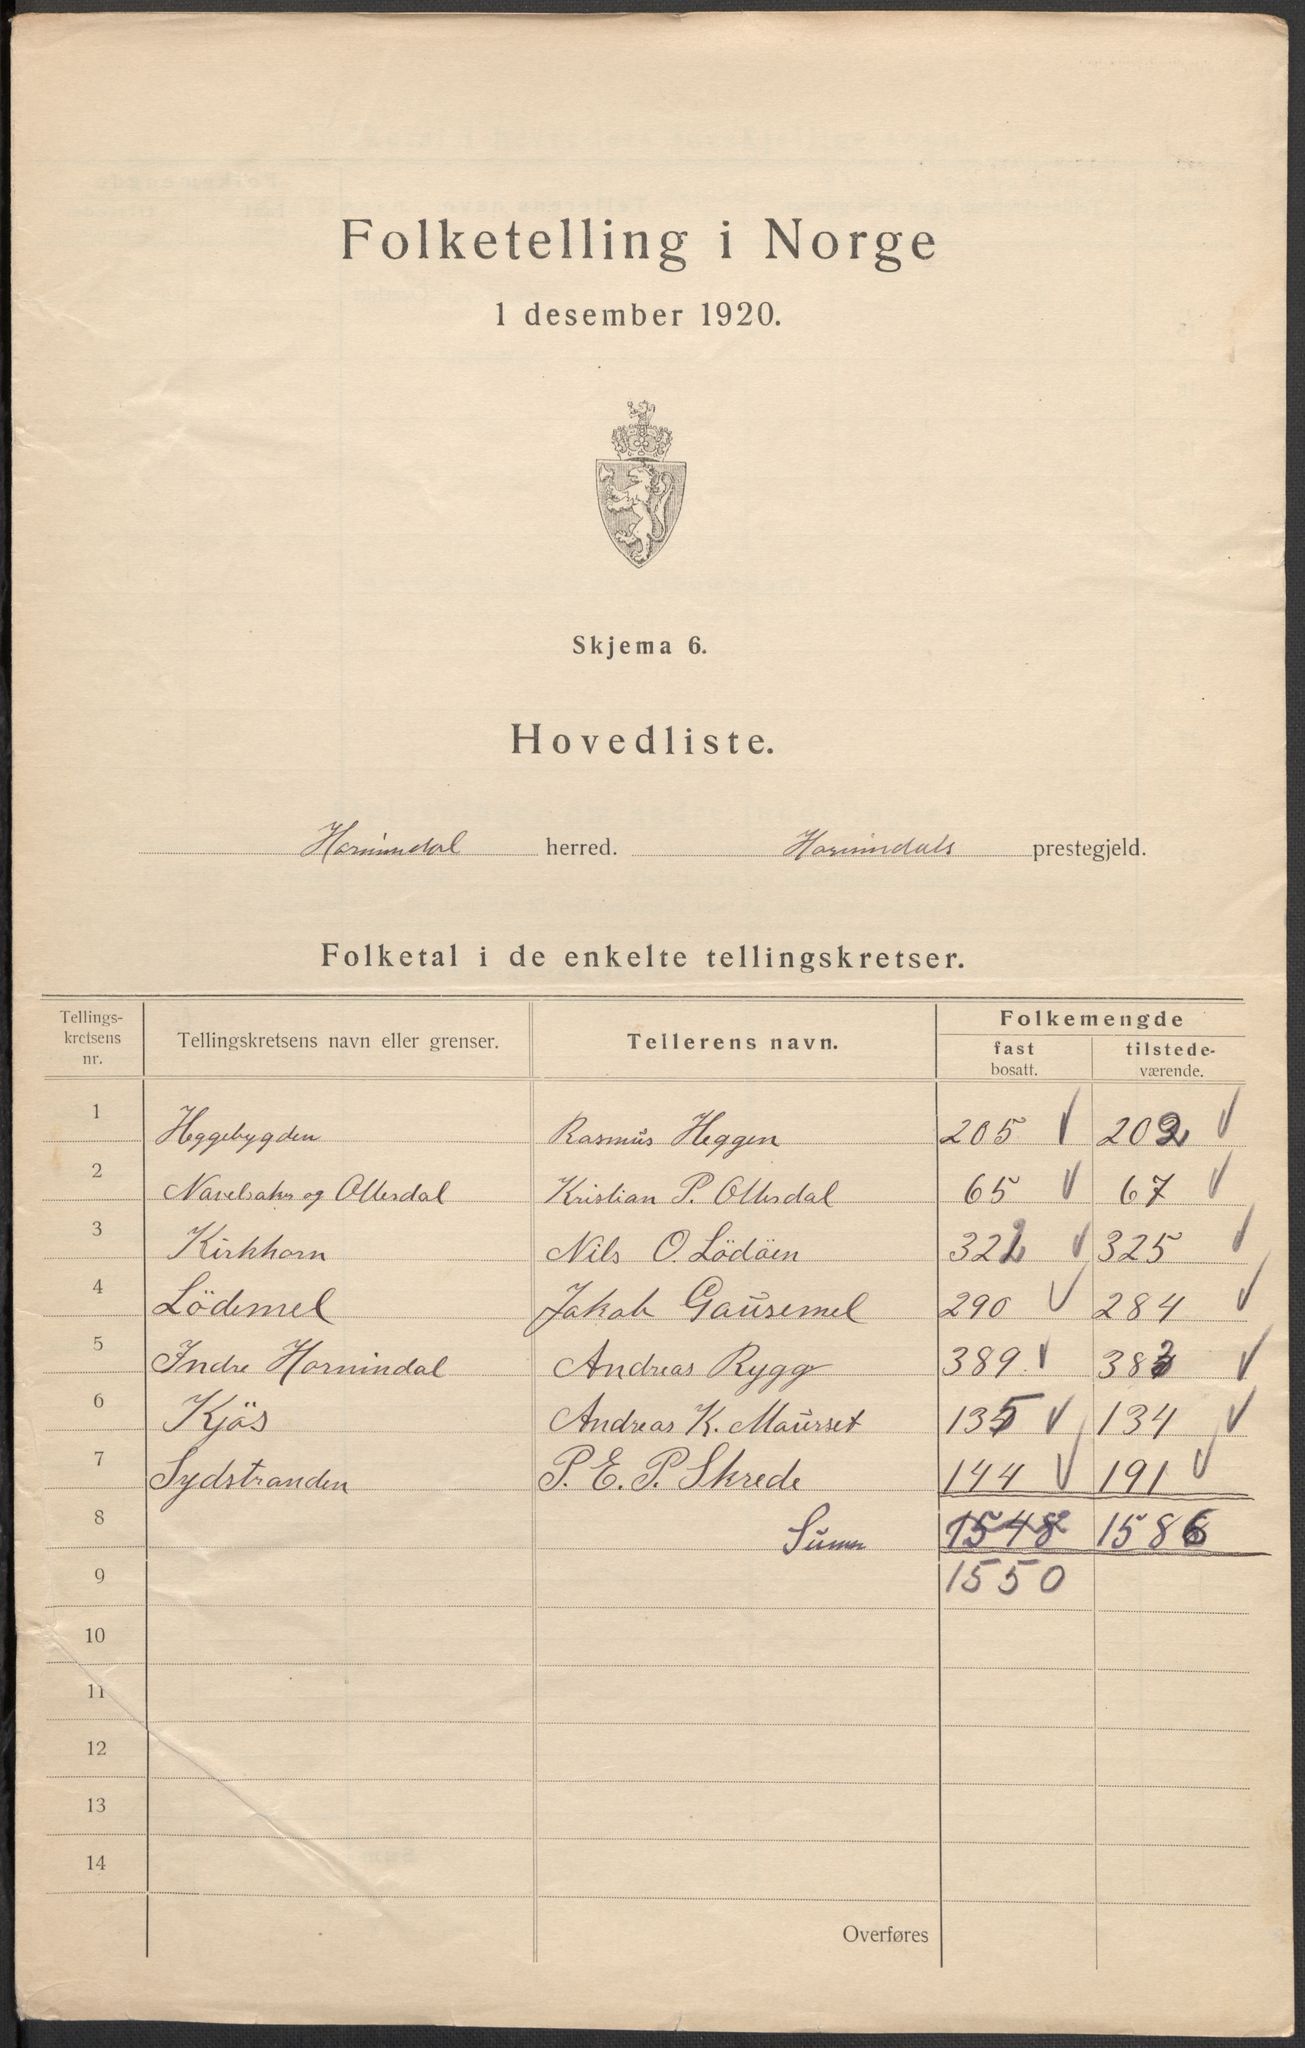 Folketelling i Norge
1 desember 1920.
Skjema 6.
Hovedliste.
Hornindal herred. Hornindals prestegjeld.
Folketal i de enkelte tellingskretser.
Tellings-
kretsens
nr.
Tellingskretsens navn eller grenser.
Tellerens navn.
Folkemengde
fast
bosatt.
tilstede-
værende.
1 Heggebygden Rasmus Heggen 205 ✓ 202 ✓
2 Navelsaker og Ottesdal Kristian P. Ottesdal 65 ✓ 67 ✓
3 Kirkhorn Nils O. Lödöen 322 ✓ 325 ✓
4 Lödemel Jakob Gausemel 290 ✓ 284 ✓
5 Indre Hornindal Andreas Rygg 389 ✓ 383 ✓
6 Kjös Andreas K. Maurset 135 ✓ 134 ✓
7 Sydstranden P. E. P. Skrede 144 ✓ 191 ✓
8 Sum 1548 1586
9 1550
10
11
12
13
14
Overføres